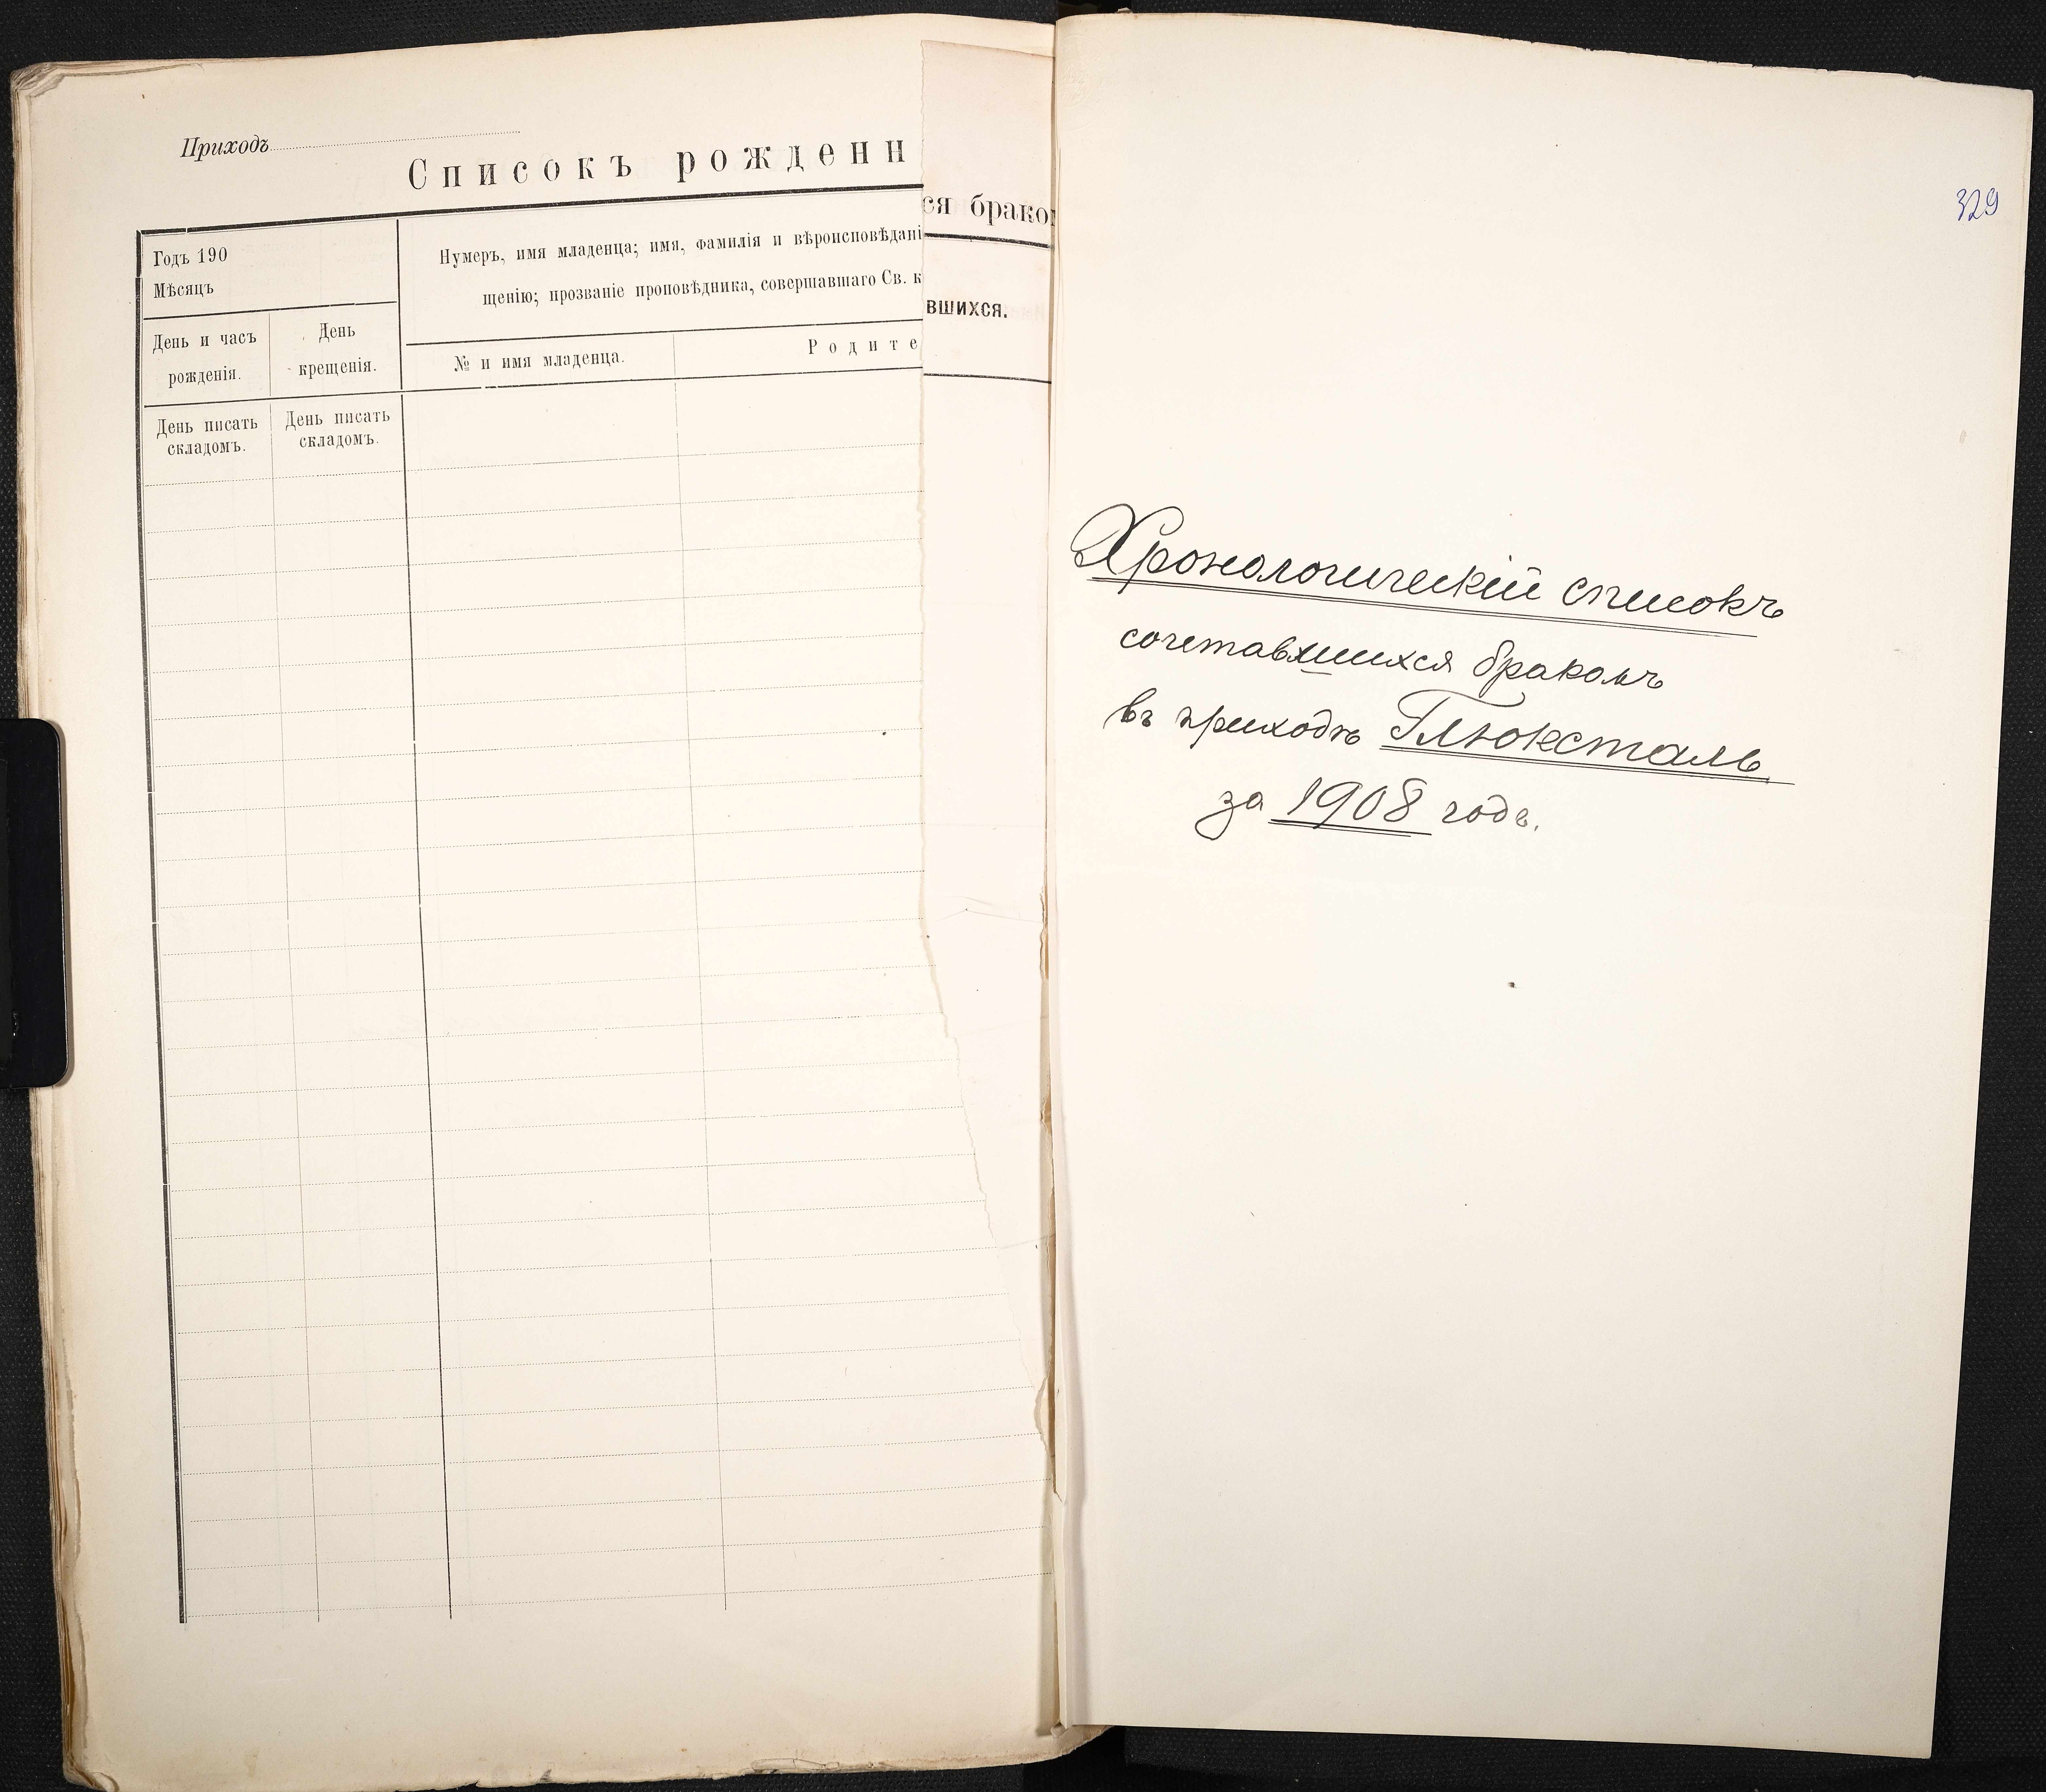 Приходъ
Списокъ рожденн
Годъ 190
Мѣсяцъ
Нумеръ, имя младенца; имя, фамилія и вѣроисповѣдані
щенію; прозваніе проповѣдника, совершавшаго Св. к
День и часъ
рожденія.
День
крещенія.
№ и имя младенца.
Родите
День писать
складомъ.
День писать
складомъ.
ся брако
вшихся.
329
Хронологическій списокъ
сочетавшихся бракомъ
въ приходѣ Глюксталь
за 1908 годъ.